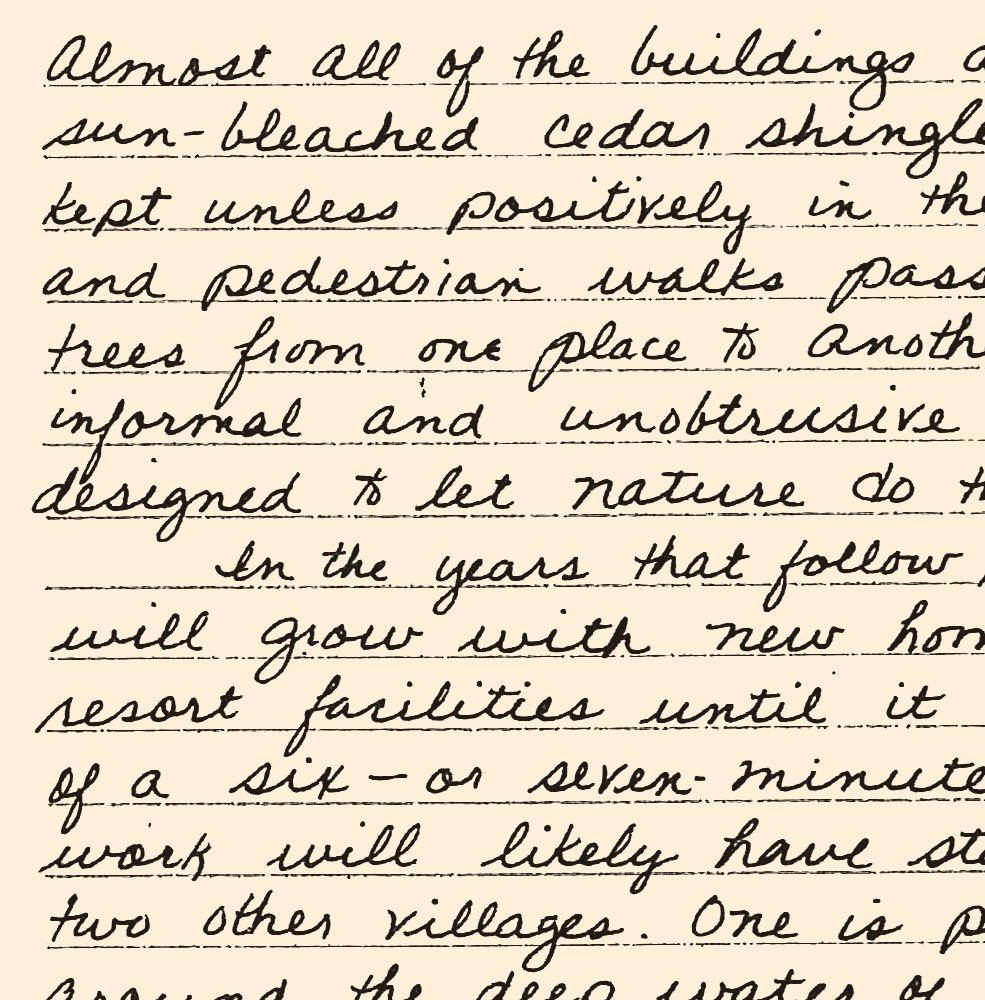 Almost all of the buildings
sun-bleached cedar shingle
kept unless positively in the
and pedestrian walks pass
trees from one place to anoth
informal and unobtrusive
designed to let nature do
In the years that follow
will grow with new hom
resort facilities until it
of a six-or seven-minute
work will likely have
two other villages. One is
around the deep water of